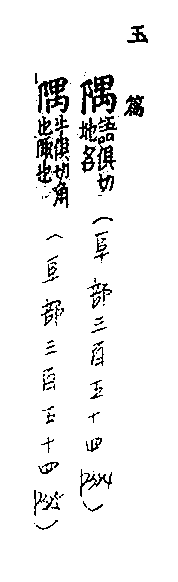 玉篇
隅
語俱切
地名
(阜部三百五十四
隅
牛俱切角
也陬也
(阜部三百五十四